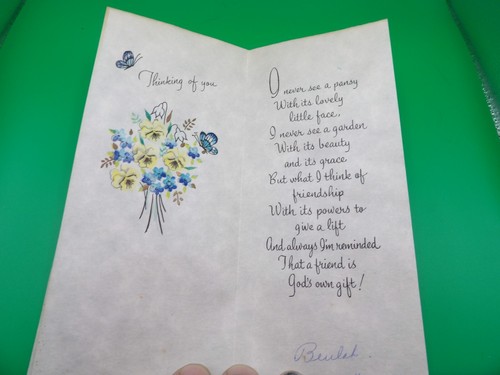 Thinking of you
I never see a pansy
With its lovely
little face,
I never see a garden
With its beauty
and its grace
But what I think of
friendship
With its powers to
give a lift
And always I'm reminded
That a friend is
God's own gift!
Beulah.